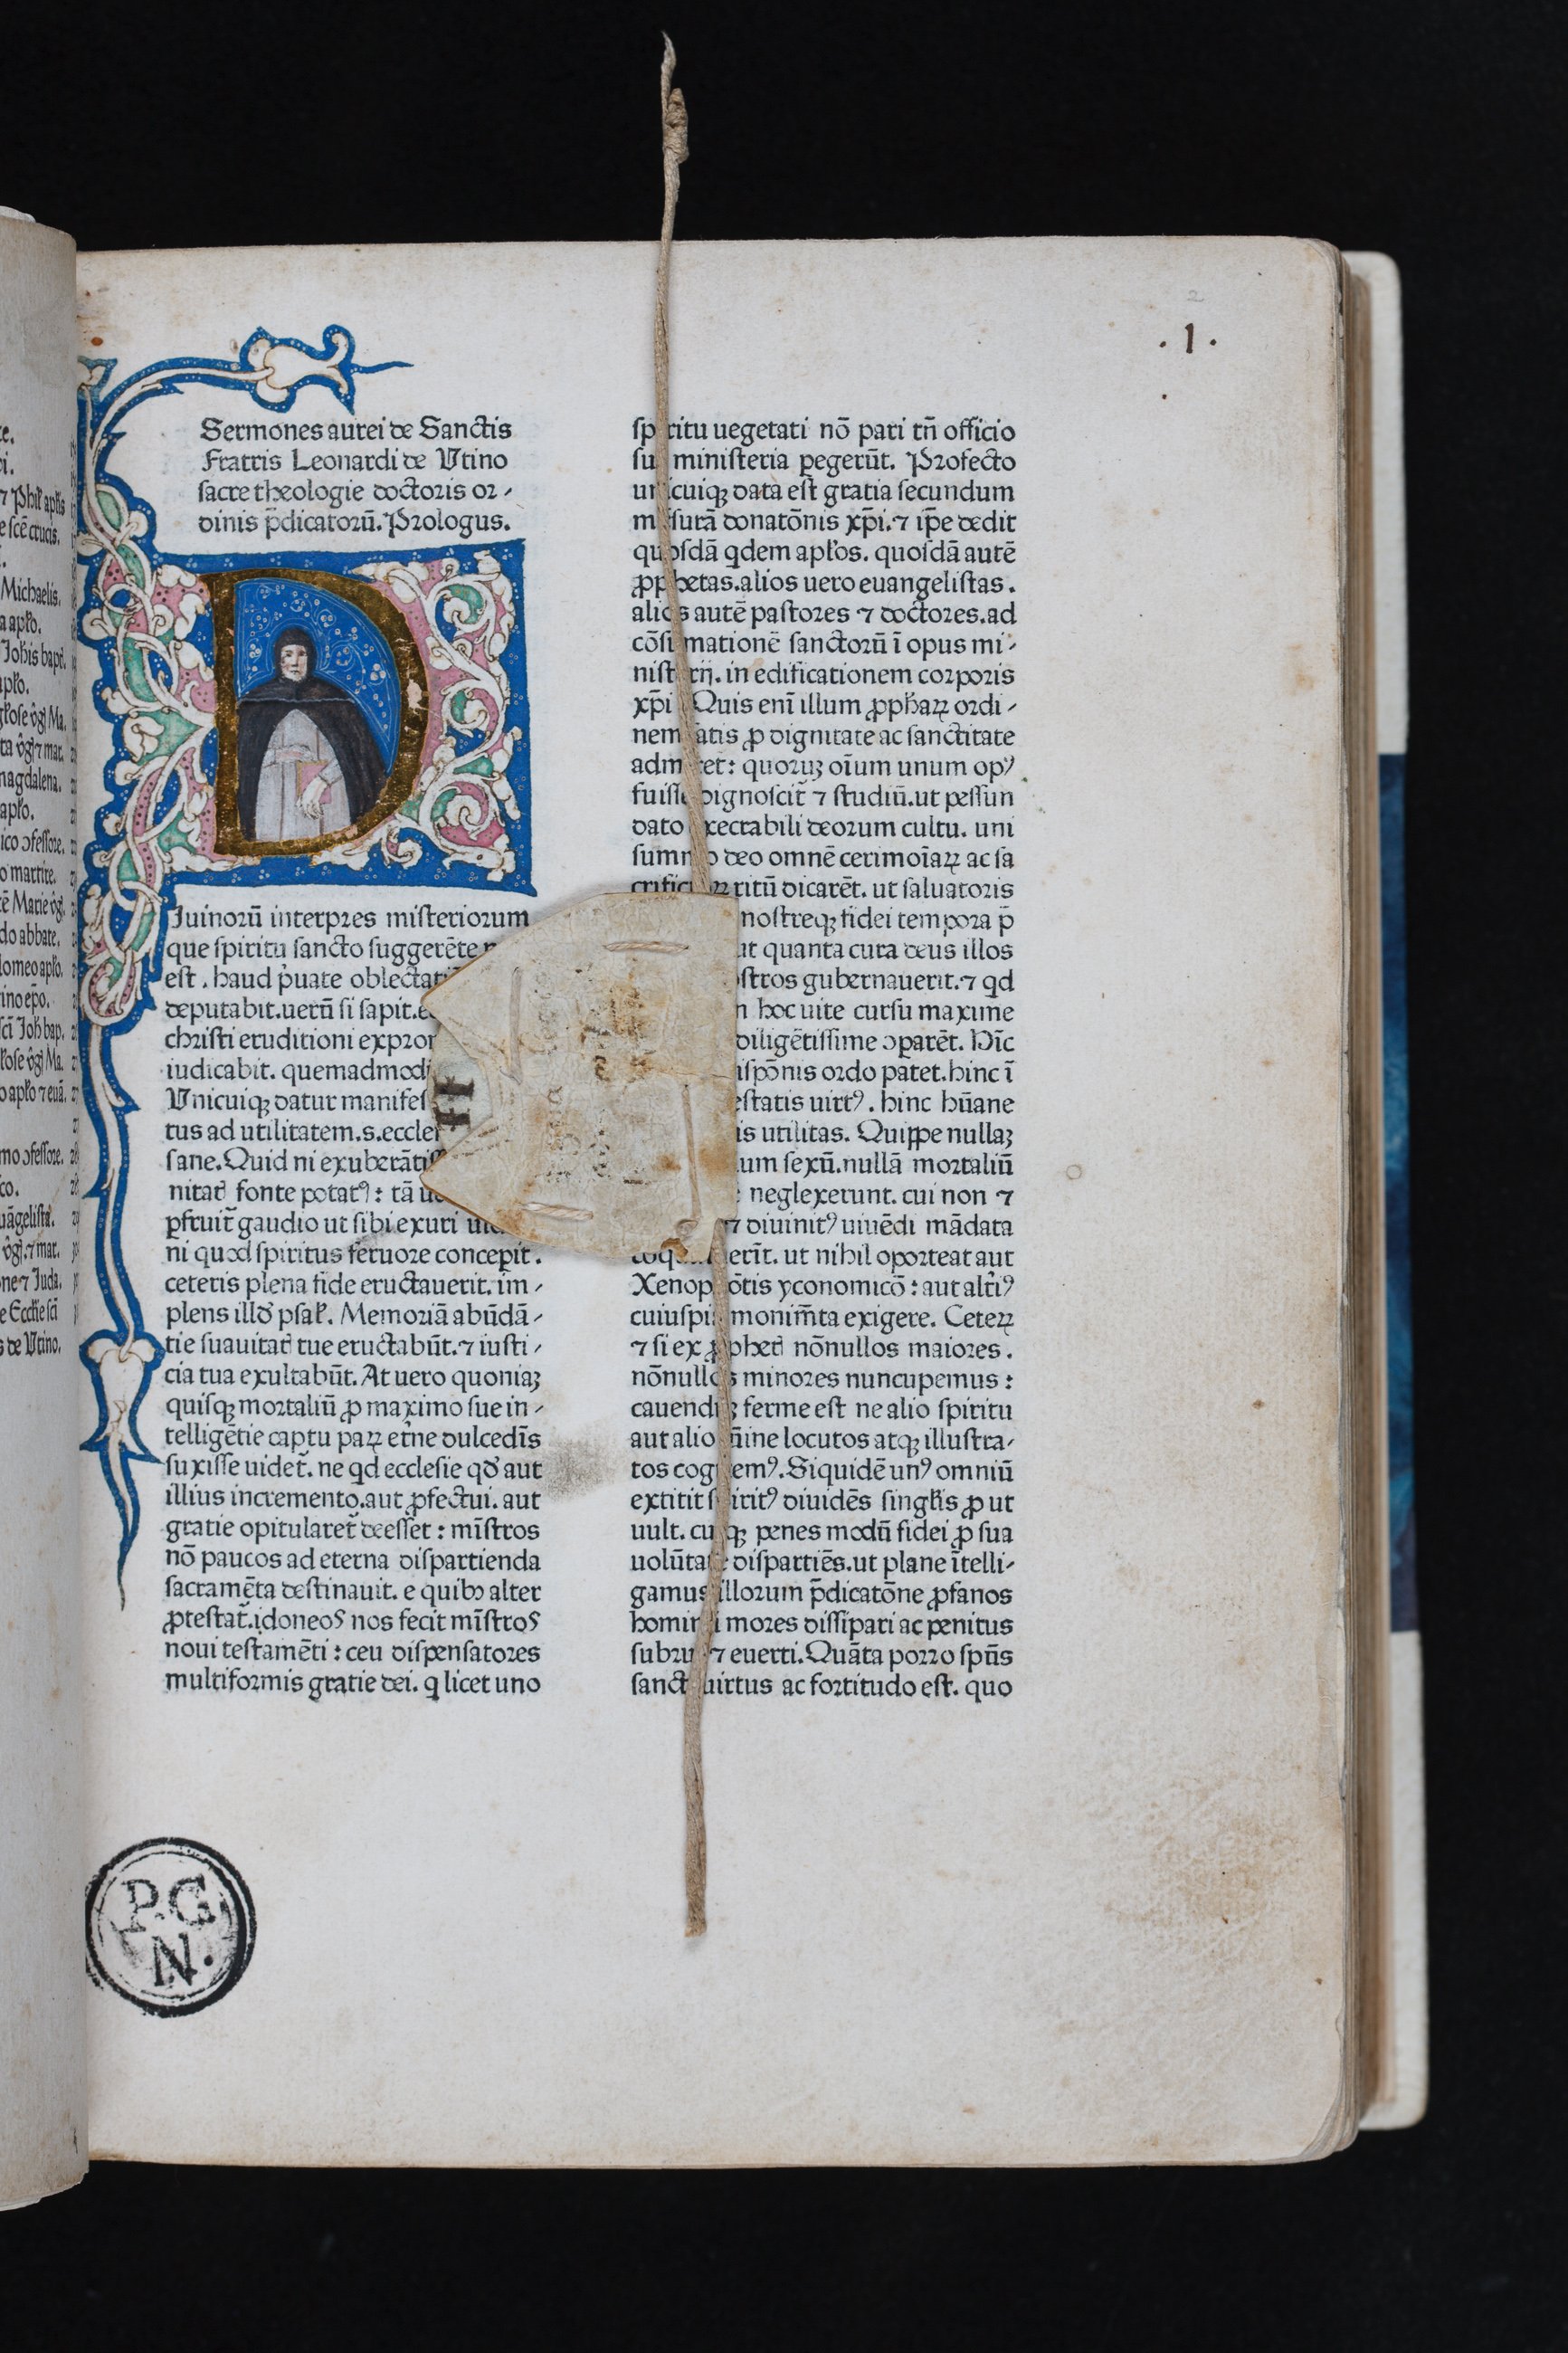 te.
pi.
⁊ Phil' apl'is
e scē crucis.
Michaelis.
a apl'o.
Iohis bapt'.
apl'o.
gl'ose v̂gĩ Ma.
ta v̂gĩ ⁊ mar.
magdalena.
apl'o.
ico ↄfessore.
o martire.
tē Marie v̂gĩ.
do abbate.
lomeo apl'o.
tino ep̄o.
sci Ioh bap.
l'ose v̂gĩ Ma.
o apl'o ⁊ euā.
mo ↄfessore.
co.
uāgelista.
v̂gĩ ⁊ mar.
ne ⁊ Iuda.
e Eccl'ie sci
s de Vtino.
2
. 1 .
Sermones aurei de Sanctis
Fratris Leonardi de Vtino
sacre theologie doctoris or-
dinis p̄dicatorū. Prologus.
D
Iuinorū interpres misteriorum
que spiritu sancto suggerēte
est. haud ṗuate oblectati
deputabit. uerū si sapit.
christi eruditioni expro
iudicabit. quemadmodū
Vnicuiqꝫ datur manifes
tus ad utilitatem. s. eccle
sane. Quid ni exuberātiss
nitat̄ fonte potatꝰ: tā
ꝑfruit̄ gaudio ut sibi exuri
ni quod spiritus feruore concepit.
ceteris plena fide eructauerit. im-
plens illđ psal'. Memoriā abūdā-
tie suauitat̄ tue eructabūt. ⁊ iusti-
cia tua exultabūt. At uero quoniaꝫ
quisqꝫ mortaliū ꝓ maximo sue in-
telligētie captu paꝝ et̄ne dulcedīs
suxisse uidet̄. ne qd ecclesie qđ aut
illius incremento. aut ꝓfectui. aut
gratie opitularet̄ deesset: mīstros
nō paucos ad eterna dispartienda
sacramēta destinauit. e quibꝰ alter
ꝓtestat̄. idoneos nos fecit mīstros
noui testamēti: ceu dispensatores
multiformis gratie dei. q licet uno
spiritu uegetati nō pari tn̄ officio
sui ministeria ꝑegerūt. Profecto
unicuiqꝫ data est gratia secundum
mēsurā donatōnis xp̄i. ⁊ ip̄e dedit
quosdā qdem apl'os. quosdā autē
ꝓphetas. alios uero euangelistas.
alios autē pastores ⁊ doctores. ad
cōsūmationē sanctorū ī opus mi-
nisterij. in edificationem corporis
xp̄i. Quis enī illum ꝓphaꝝ ordi-
nem satis ꝓ dignitate ac sanctitate
admiret: quoruꝫ oīum unum opꝰ
fuisse dignoscit̄ ⁊ studiū. ut pessun
dato execrabili deorum cultu. uni
summo deo omnē cerimoīaꝝ ac sa
crificioꝝ ritū dicarēt. ut saluatoris
nostreqꝫ fidei tempora p̄
ut quanta cura deus illos
nostros gubernauerit. ⁊ qd
n hoc uite cursu maxime
diligētissime ↄꝑarēt. Hīc
dispōnis ordo patet. hinc ī
estatis uirtꝰ. hinc hūane
is utilitas. Quippe nullaꝫ
um sexū. nullā mortaliū
neglexerunt. cui non ⁊
⁊ diuinitꝰ uiuēdi mādata
erīt. ut nihil oporteat aut
Xenophōtis yconomicō: aut alt̄iꝰ
cuiuspiā monim̄ta exigere. Ceteꝝ
⁊ si ex ꝓphet̄ nōnullos maiores.
nōnullos minores nuncupemus:
cauenduꝫ ferme est ne alio spiritu
aut alio nūine locutos atqꝫ illustra-
tos cogitemꝰ. Siquidē unꝰ omniū
extitit spiritꝰ diuidēs singl'is ꝓ ut
uult. cuiqꝫ penes modū fidei ꝓ sua
uolūtate dispartiēs. ut plane ītelli-
gamus illorum p̄dicatōne ꝓfanos
hominū mores dissipari ac penitus
subrui ⁊ euerti. Quāta porro spūs
sancti uirtus ac fortitudo est. quo
P.G
N.